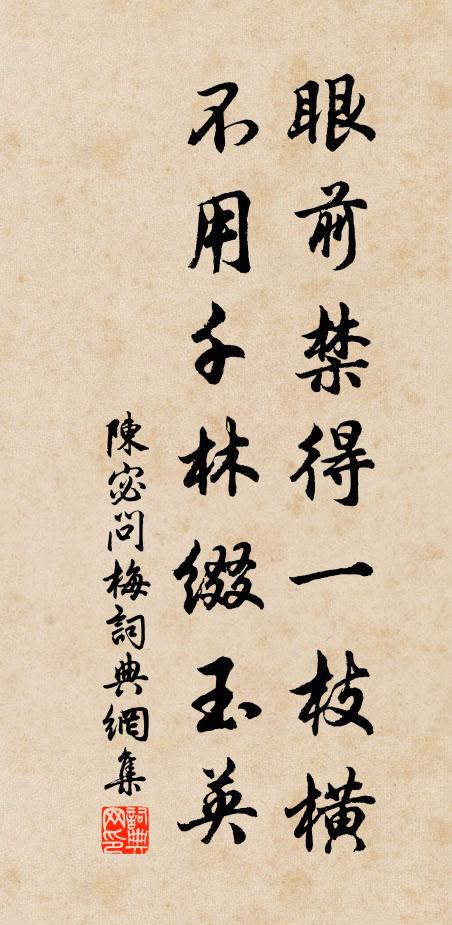 眼前禁得一枝橫
不用千林綴玉英
陳宓問梅詞典網集
詞典网印